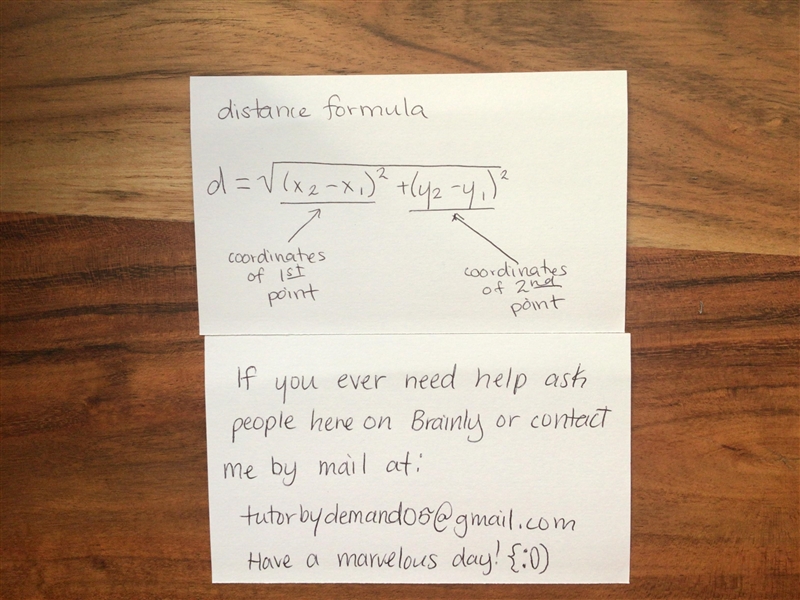 distance formula
d = √(x₂ - x₁)² + (y₂ - y₁)²
coordinates
of 1st
point
coordinates
of 2nd
point
If you ever need help ask
people here on Brainly or contact
me by mail at:
tutorbydemand05@gmail.com
Have a marvelous day! {:0)